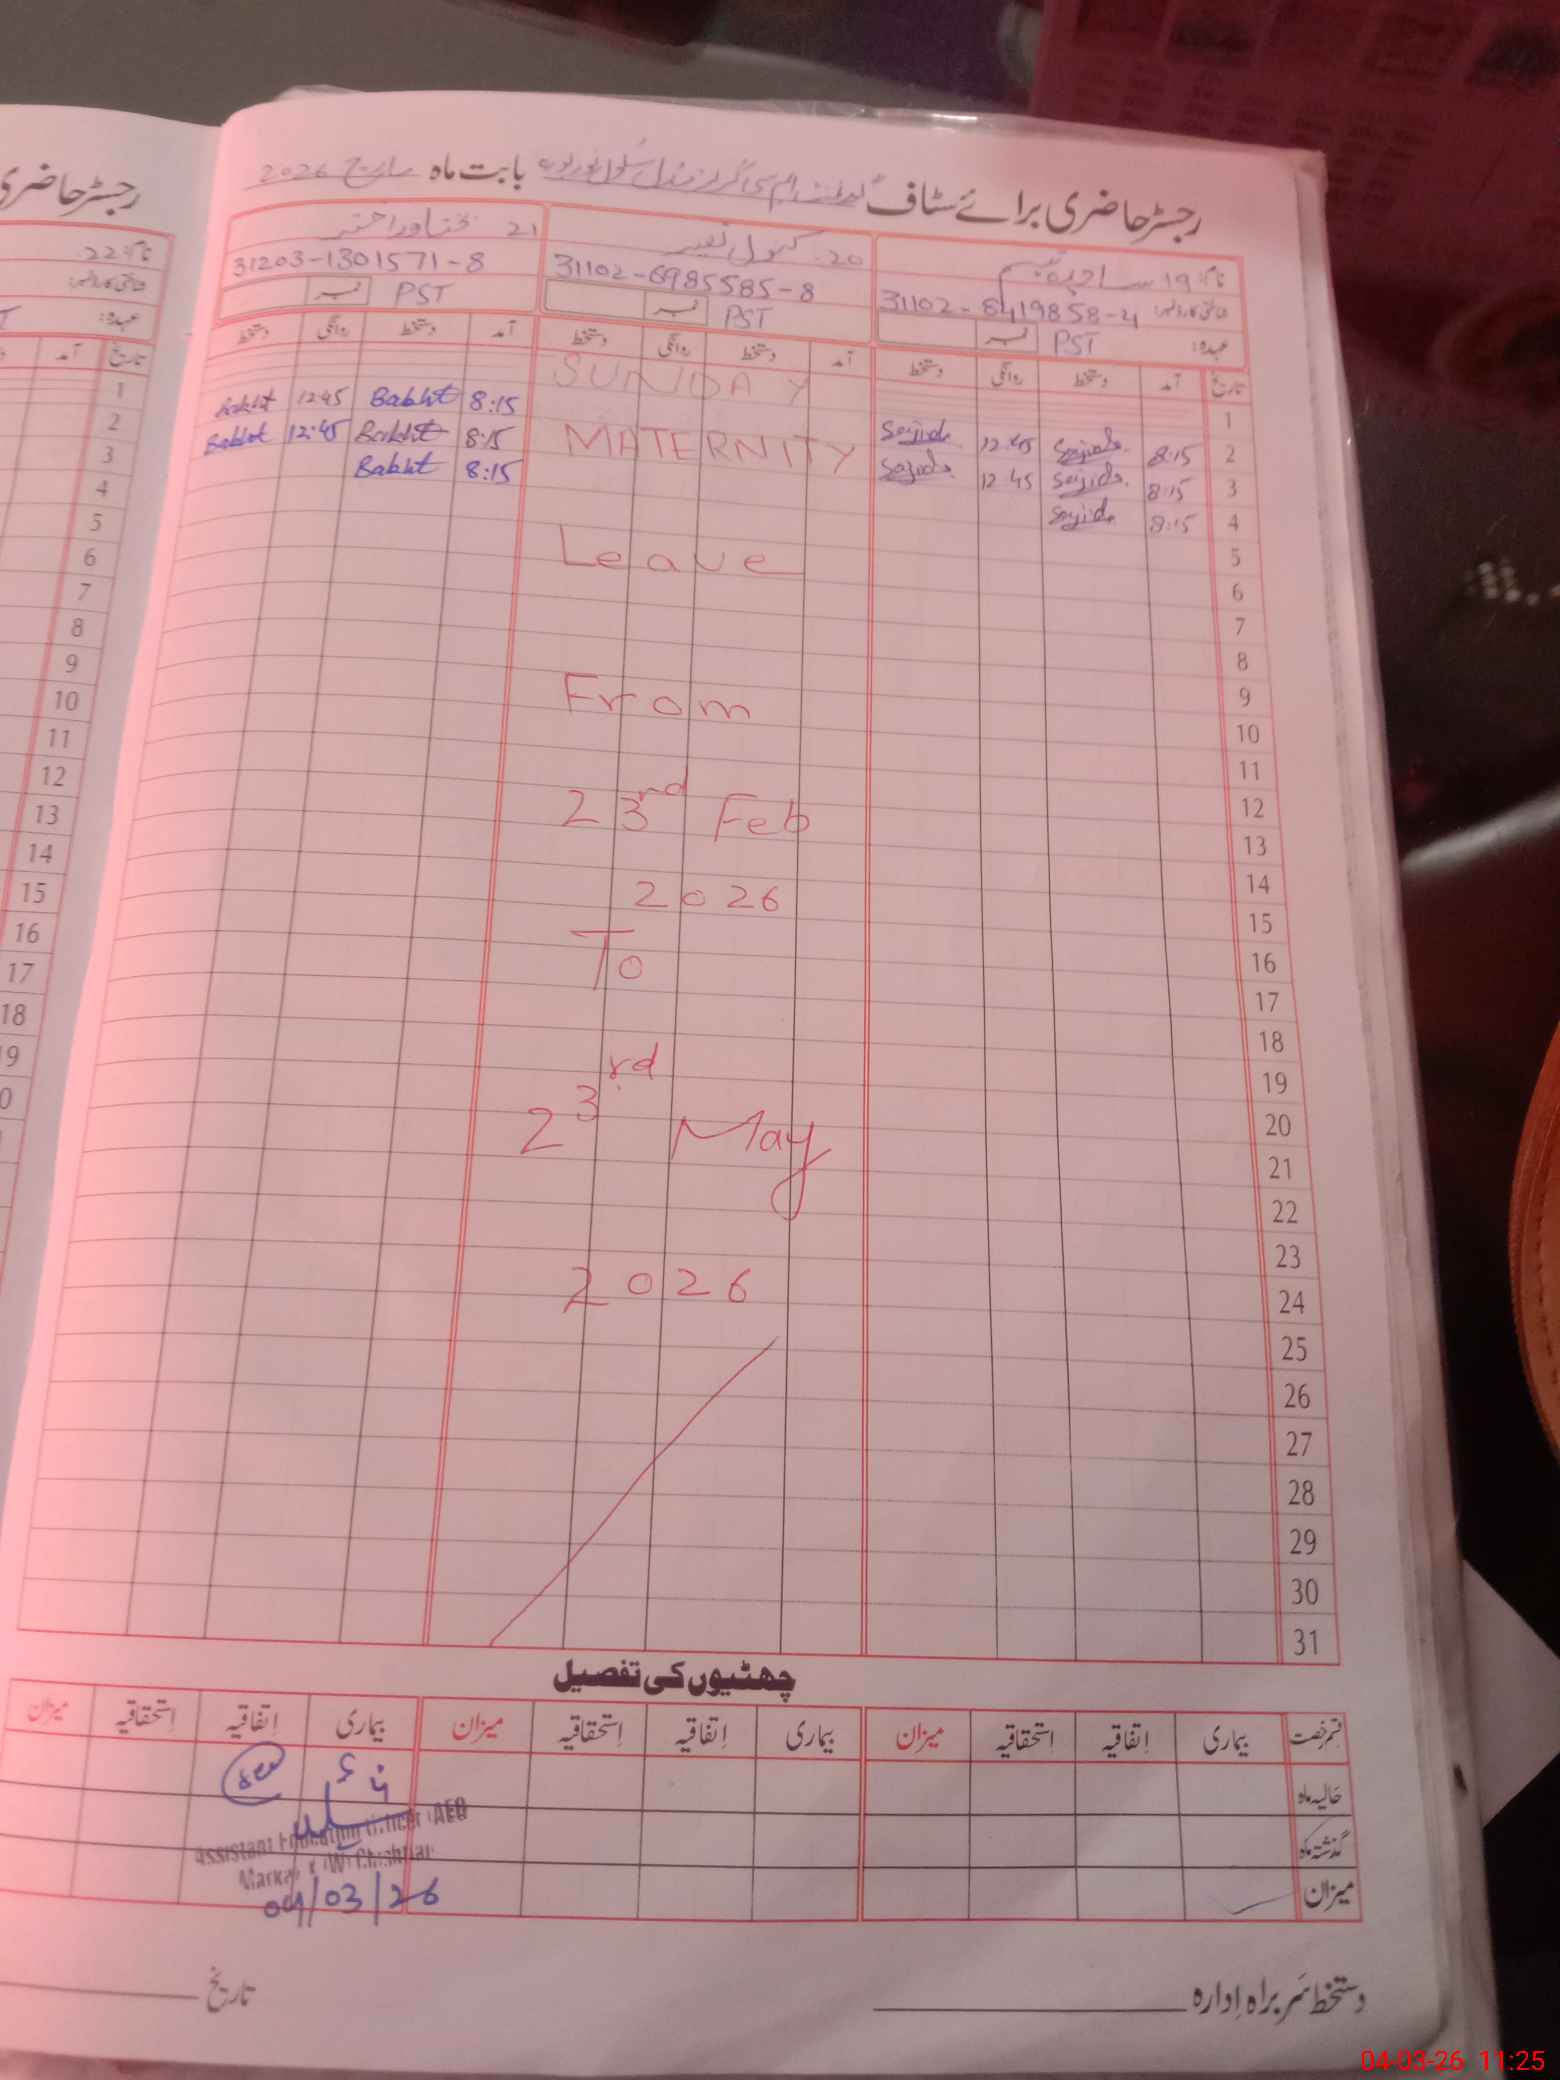 رجسٹر حاضری برائے سٹاف گورنمنٹ ایم سی گرلز مڈل سکول بابت ماہ مارچ 2026
رجسٹر حاضری
نام: 19 ساجدہ 20. کنول نصیر 21 بختاور اختر
نام: 22
شناختی کارڈ نمبر: 31102-8419858-4 31102-6985585-8 31203-1301571-8
عہدہ: PST نمبر PST نمبر PST نمبر
تاریخ آمد دستخط روانگی دستخط آمد دستخط روانگی دستخط آمد دستخط روانگی دستخط
تاریخ آمد
1 SUNDAY
2 8:15 Sajida 12:45 Sajida 8:15 Bakht 12:45 Bakht
3 8:15 Sajida 12 45 Sajida MATERNITY 8:15 Bakht 12:45 Bakht
4 8:15 Sajida 8:15 Bakht
5
6 Leave
7
8
9
10 From
11
12
13 23rd Feb
14
15 2026
16
17 To
18
19
20
21 23rd May
22
23
24 2026
25
26
27
28
29
30
31
1
2
3
4
5
6
7
8
9
10
11
12
13
14
15
16
17
18
چھٹیوں کی تفصیل
قسم رخصت بیماری اِتفاقیہ اِستحقاقیہ میزان بیماری اِتفاقیہ اِستحقاقیہ میزان بیماری اِتفاقیہ اِستحقاقیہ میزان
حالیہ ماہ
گذشتہ ماہ
میزان
Assistant Education Officer (AEO)
Markaz (W) Chishtian
04/03/26
دستخط سربراہ اِدارہ
تاریخ
04-03-26 11:25